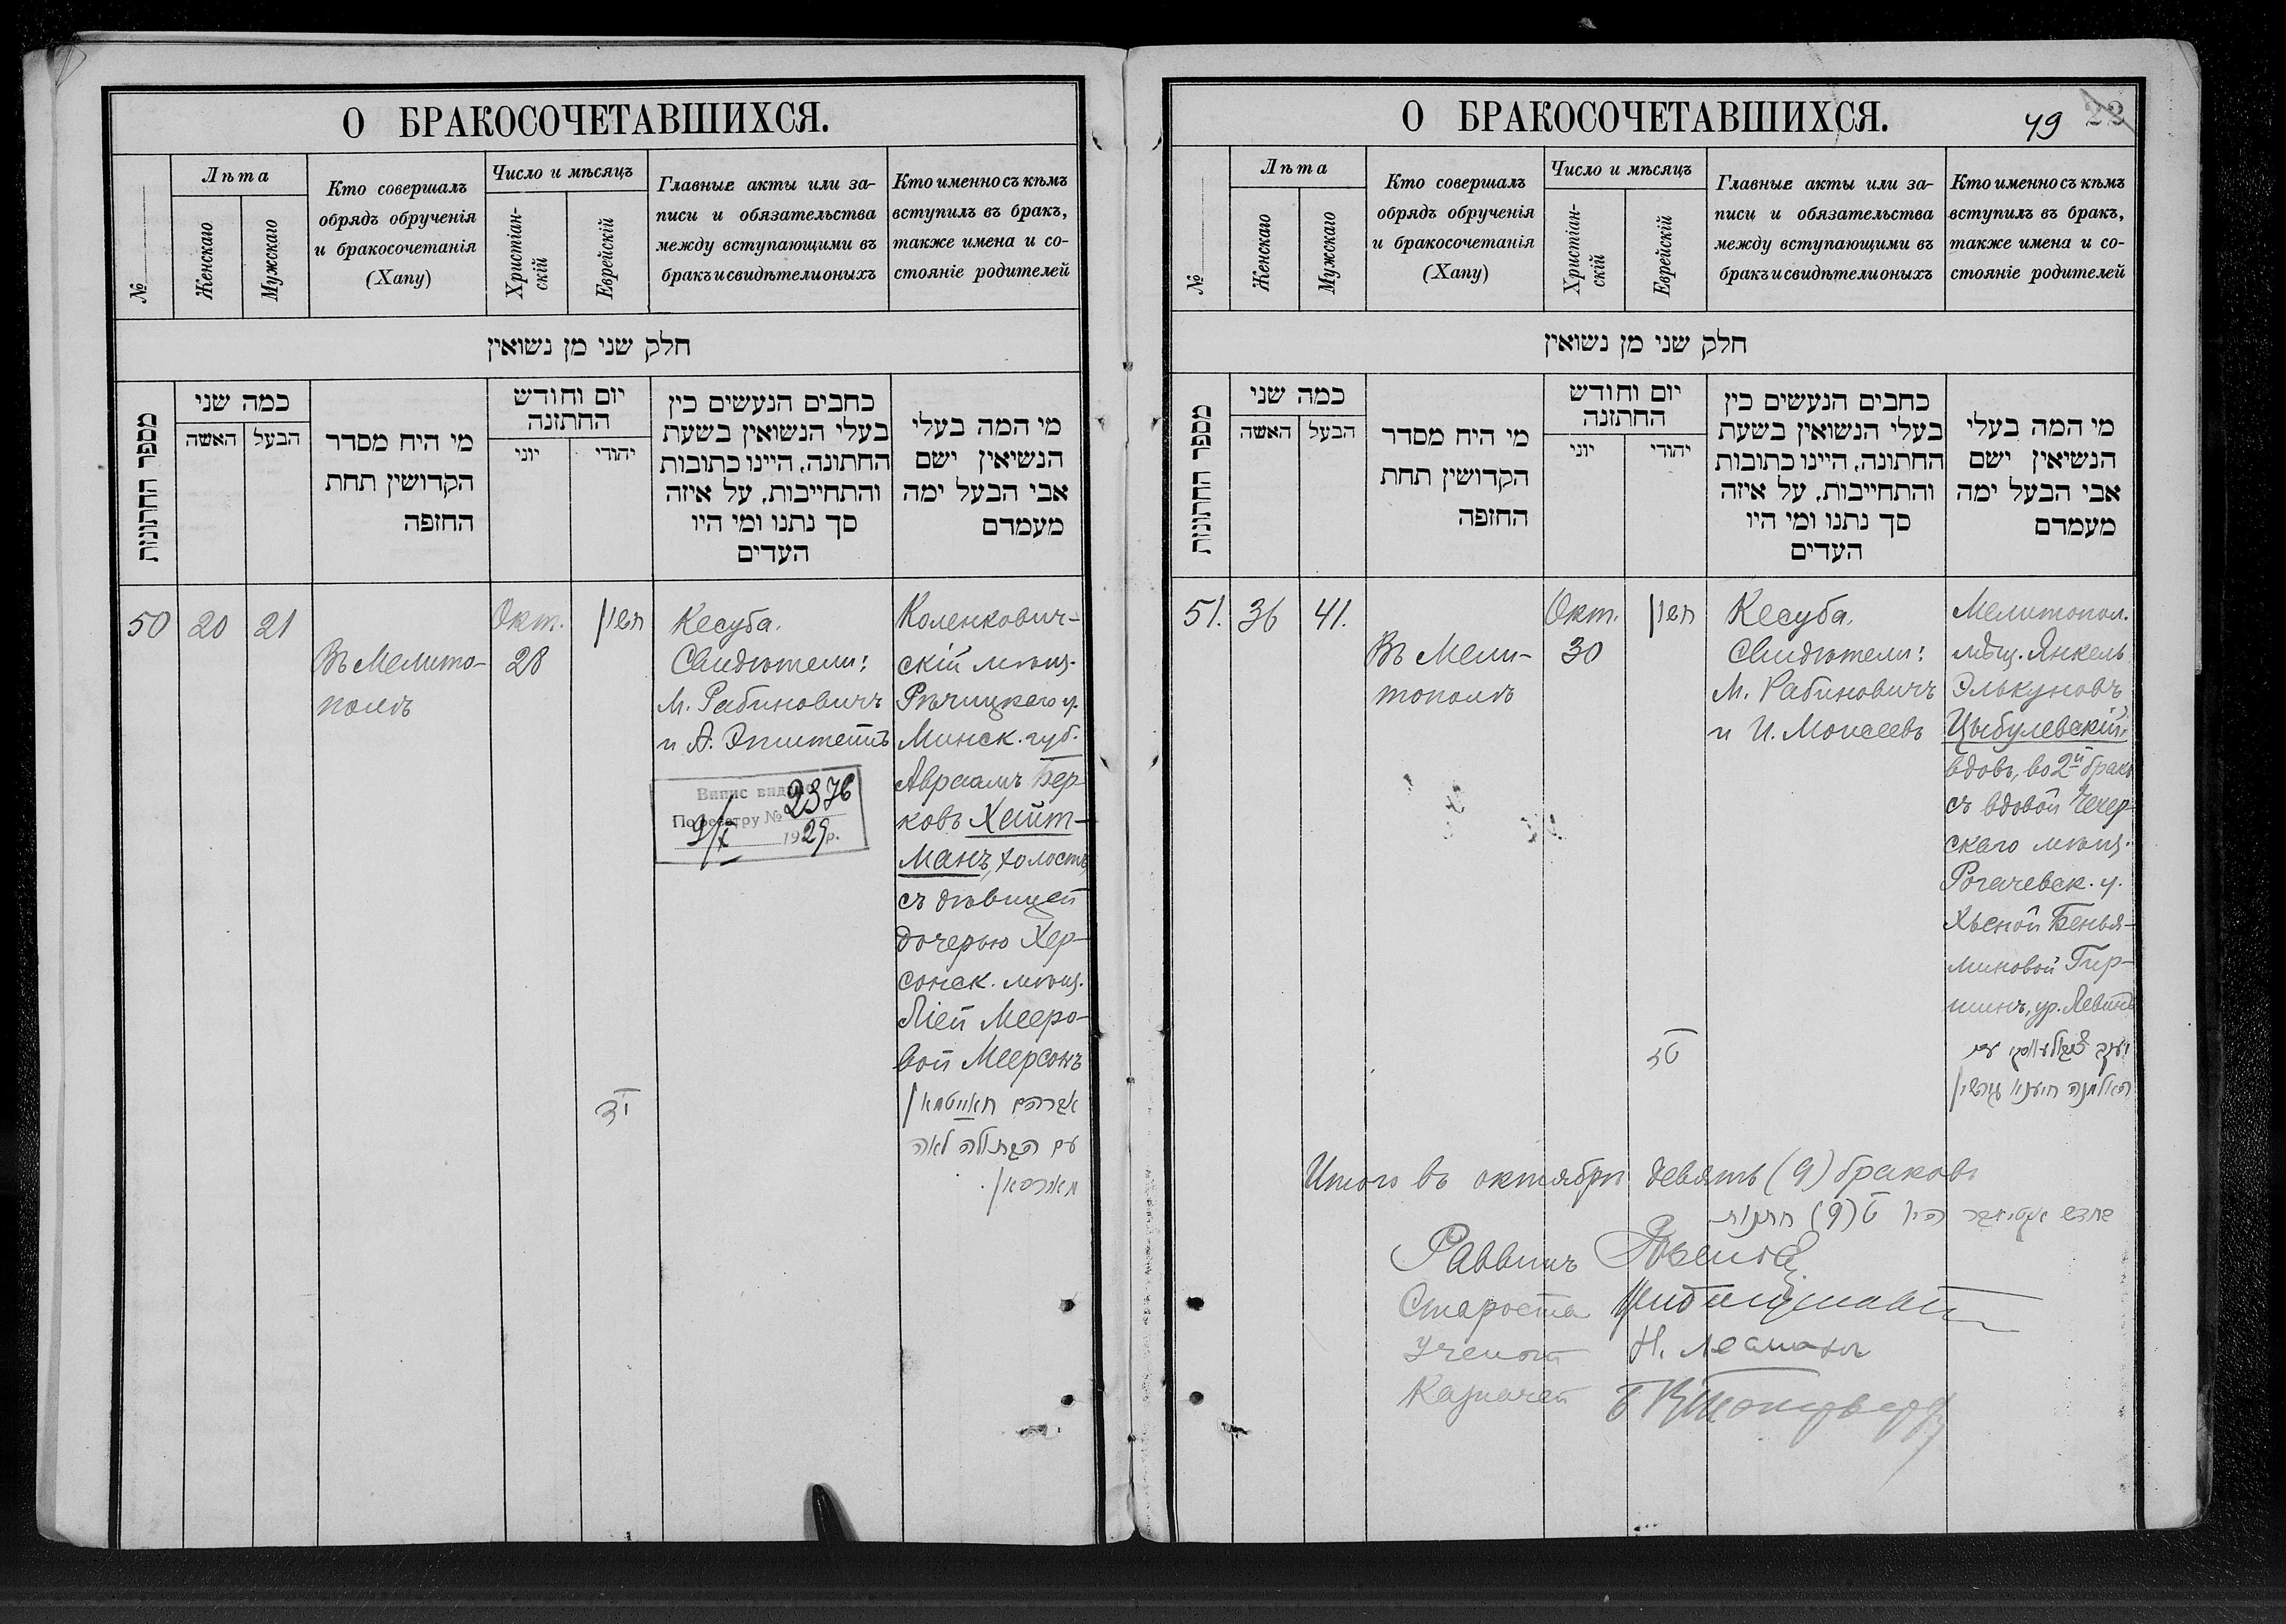 О БРАКОСОЧЕТАВШИХСЯ.
№
Лѣта
Женскаго
Мужскаго
Кто совершалъ
обрядъ обрученія
и бракосочетанія
(Хапу)
Число и мѣсяцъ
Христіан-
скій
Еврейскій
Главные акты или за-
писи и обязательства
между вступающими въ
бракъ и свидѣтели оныхъ
Кто именно съ кѣмъ
вступилъ въ бракъ,
также имена и со-
стояніе родителей
חלק שני מן נשואין
מספר החתונות
כמה שני
האשה
הבעל
מי היח מסדר
הקדושין תחת
החזפה
יום וחודש
החתזנה
יוני
יהודי
כחבים הנעשים כין
בעלי הנשואין בשעת
החתונה, היינו כתובות
והתחייבות, על איזה
סך נתנו ומי היו
העדים
מי המה בעלי
הנשיאין ישם
אבי הבעל ימה
מעמדם
50
20
21
Въ Мелито-
полѣ
Окт.
28
חשון
יד
Кесуба.
Свидѣтели:
М. Рабиновичъ
и А. Эпштейнъ
Випис видано
По реєстру № 2376
9/X 1929 р.
Коленкович-
скій мѣщ.
Рѣчицкаго у.
Минск. губ.
Авраамъ Бер-
ковъ Хейт-
манъ, холостъ,
съ дѣвицей
дочерью Хер-
сонск. мѣщ.
Ліей Мееро-
вой Меерсонъ
אברהם חאייטמאן
עם הבתולה לאה
מאירסאן.
О БРАКОСОЧЕТАВШИХСЯ.
49
22
№
Лѣта
Женскаго
Мужскаго
Кто совершалъ
обрядъ обрученія
и бракосочетанія
(Хапу)
Число и мѣсяцъ
Христіан-
скій
Еврейскій
Главные акты или за-
писи и обязательства
между вступающими въ
бракъ и свидѣтели оныхъ
Кто именно съ кѣмъ
вступилъ въ бракъ,
также имена и со-
стояніе родителей
חלק שני מן נשואין
מספר החתונות
כמה שני
האשה
הבעל
מי היח מסדר
הקדושין תחת
החזפה
יום וחודש
החתזנה
יוני
יהודי
כחבים הנעשים כין
בעלי הנשואין בשעת
החתונה, היינו כתובות
והתחייבות, על איזה
סך נתנו ומי היו
העדים
מי המה בעלי
הנשיאין ישם
אבי הבעל ימה
מעמדם
51.
36
41.
Въ Мели-
тополѣ
Окт.
30
חשון
טז
Кесуба.
Свидѣтели:
М. Рабиновичъ
и И. Моисеевъ
Мелитопол.
мѣщ. Янкель
Элькуновъ
Цыбулевскій,
вдовъ, во 2й бракъ
съ вдовой Чечер-
скаго мѣщ.
Рогачевск. у.
Хьеной Бенья-
миновой Гир-
шинъ, ур. Левинъ
יעקב ציבולעווסקי עם
האלמנה חיענא גירשין
Итого въ октябрѣ девять (9) браковъ
בחדש אקטיאבר היו ט (9) חתנות
Раввинъ
Староста
Ученый
Казначей